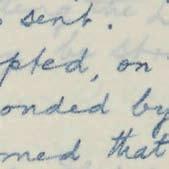 s sent.
pted, on
onded by
med that